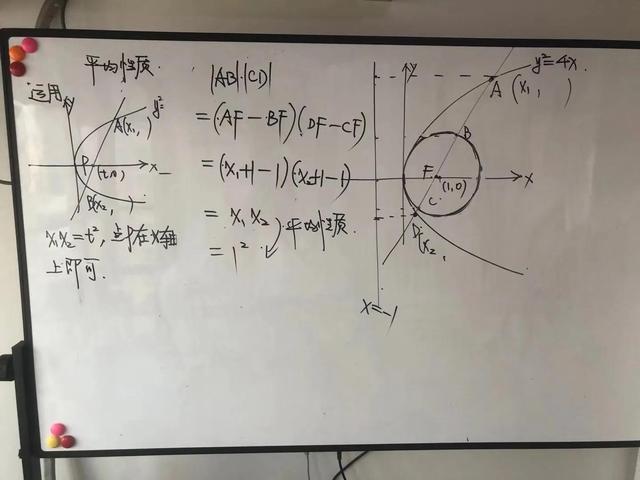 平均性质.
运用
y
y²=
A(x₁, )
P
(t,0)
x
B(x₂, )
x₁x₂=t², 点P在x轴
上即可.
|AB|·|CD|
=(AF-BF)(DF-CF)
=(x₁+1-1)(x₂+1-1)
=x₁x₂
=1²
平均性质.
y
y²=4x.
A (x₁, )
B
F
(1,0)
x
C
D(x₂,
x=-1